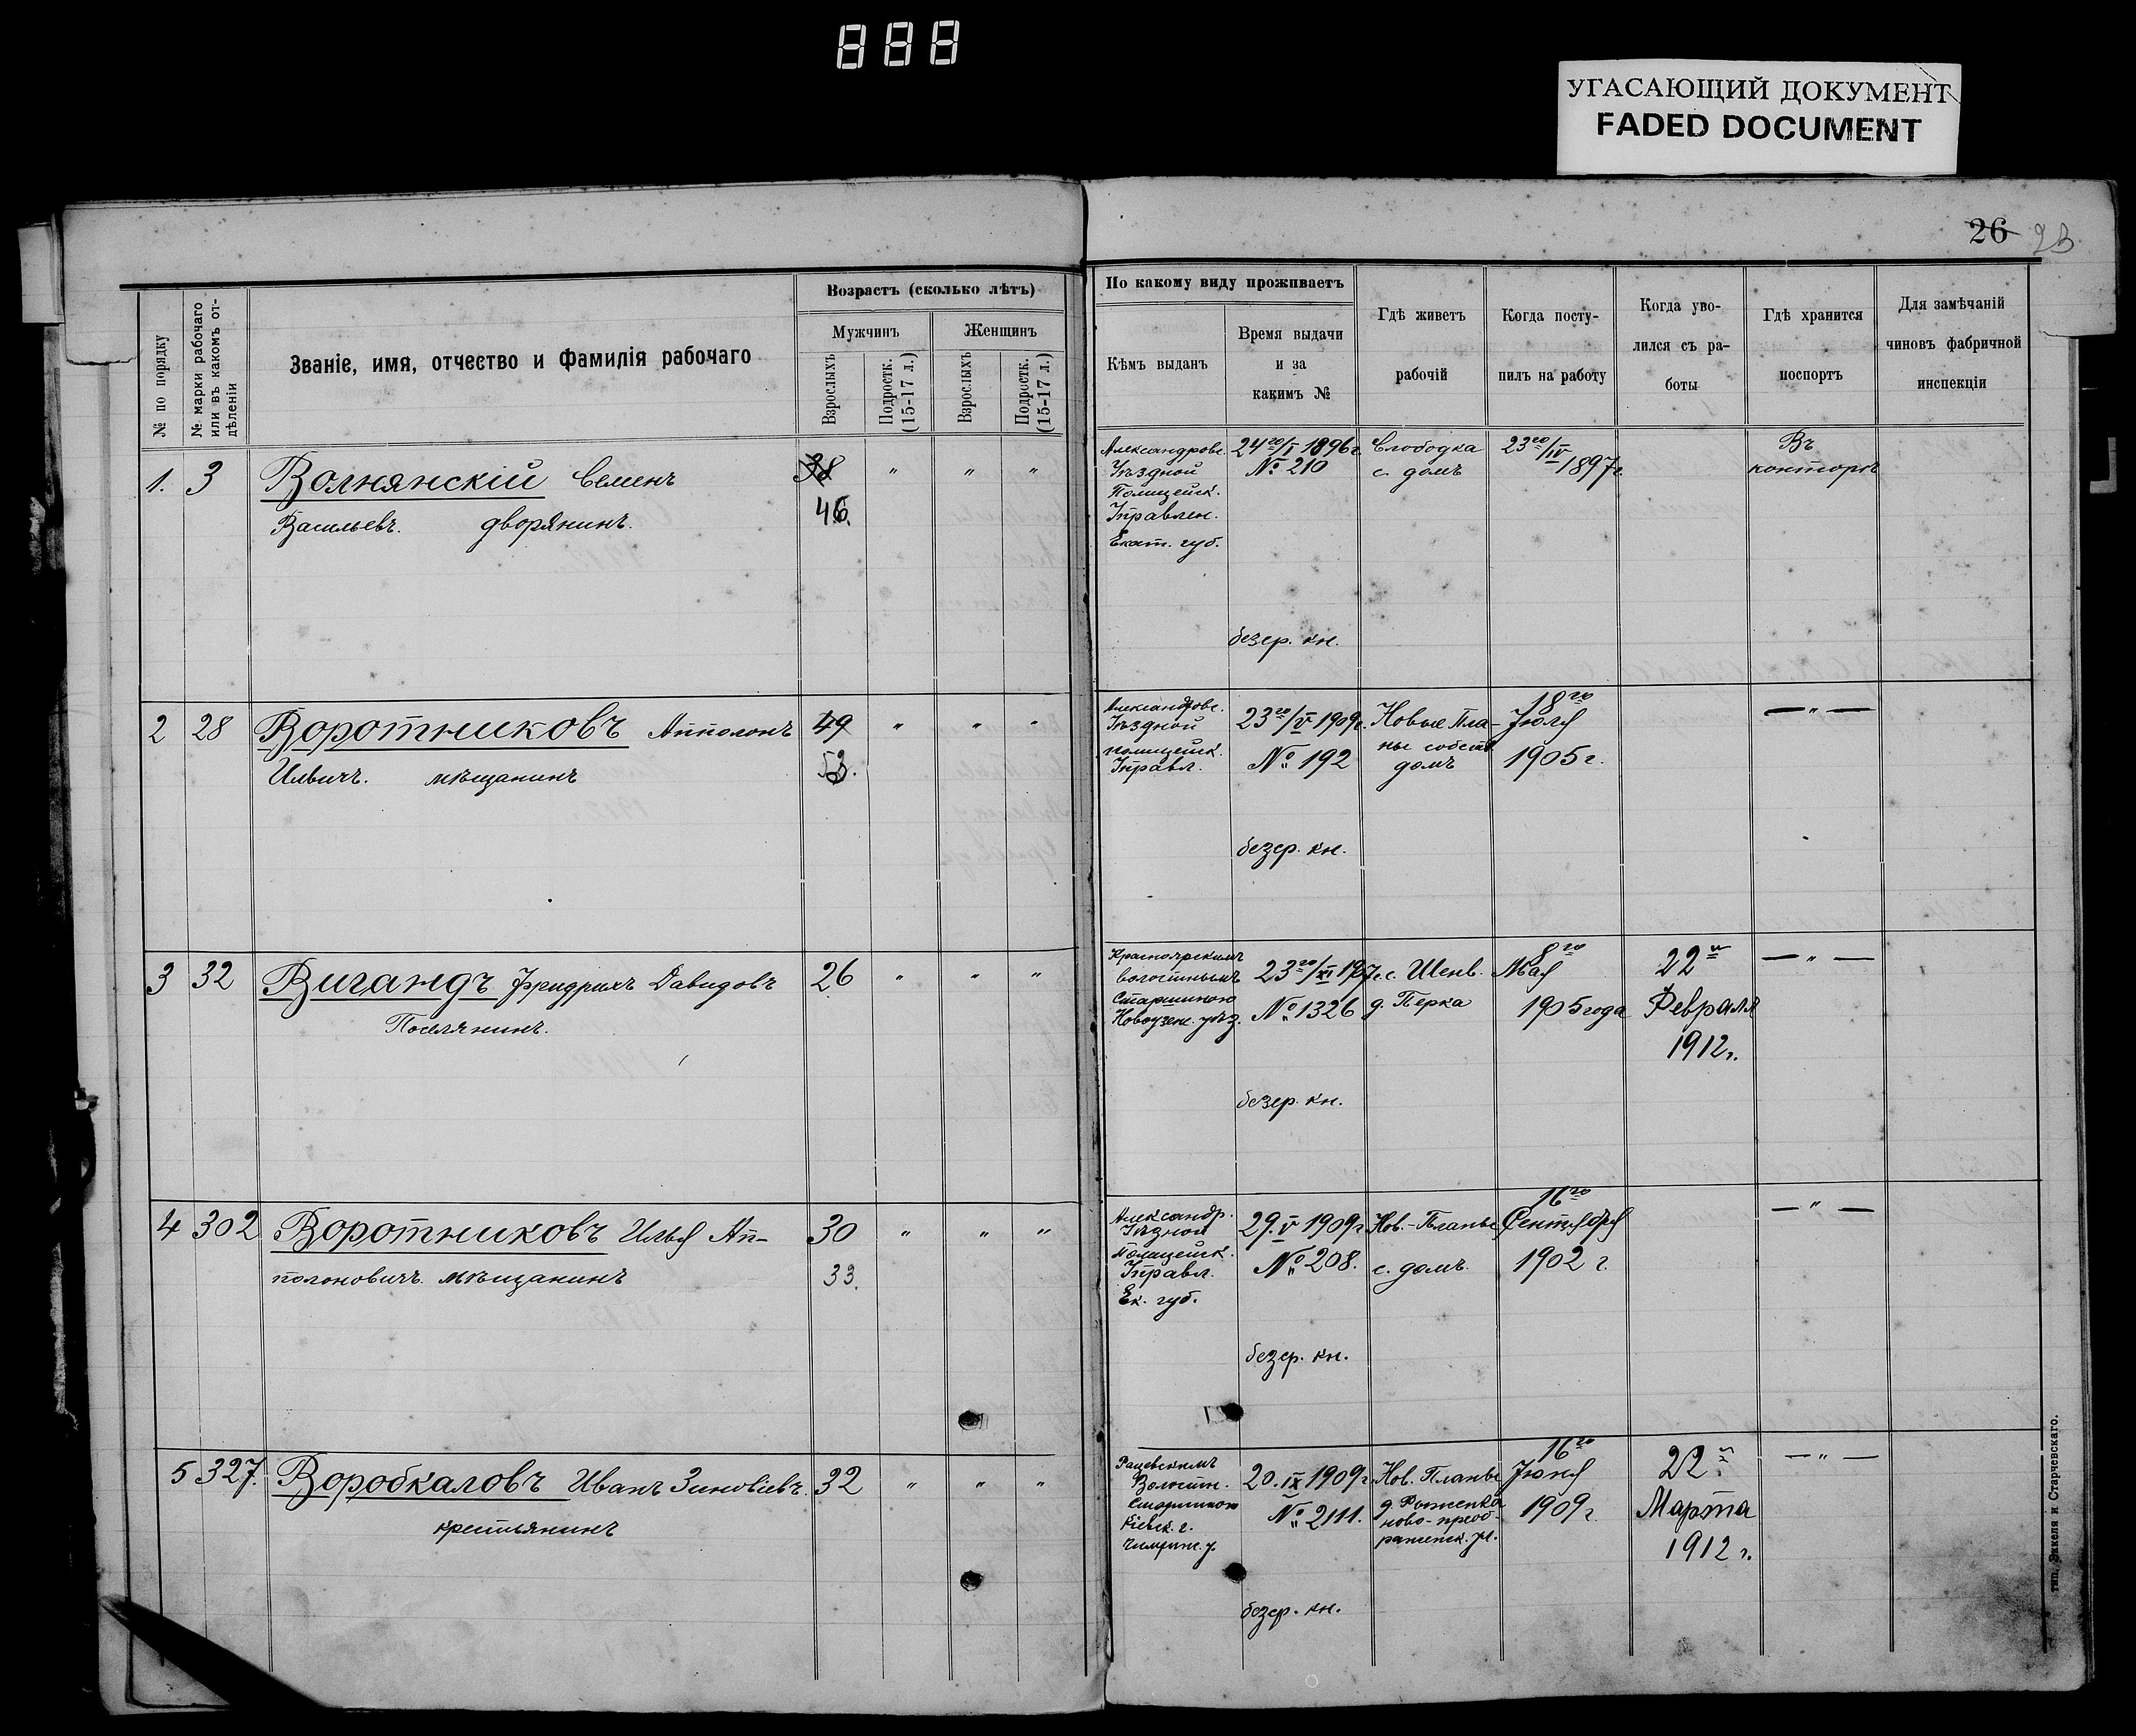 888
УГАСАЮЩИЙ ДОКУМЕНТ
FADED DOCUMENT
26
№ по порядку
№ марки рабочаго или въ какомъ отдѣленіи
Званіе, имя, отчество и фамилія рабочаго
Возрастъ (сколько лѣтъ)
Мужчинъ
Женщинъ
Взрослыхъ
Подростк. (15-17 л.)
Взрослыхъ
Подростк. (15-17 л.)
По какому виду проживаетъ
Кѣмъ выданъ
Время выдачи
и за
какимъ №
Гдѣ живетъ
рабочій
Когда посту-
пилъ на работу
Когда уво-
лился съ ра-
боты
Гдѣ хранится
поспортъ
Для замѣчаній
чиновъ фабричной
инспекціи
1. 3 Волнянскій Семенъ 38 " " "
Васильевъ. дворянинъ. 46.
Александровс.
Уѣздной
Полицейск.
Управлен.
Екат. губ.
24го/I 1896г.
№ 210
безср. кн.
Слободка
с. домъ
23го/IV
1897г.
Въ
конторѣ
2 28 Воротниковъ Апполонъ 49 " " "
Ильичъ. мѣщанинъ 53.
Александровс.
Уѣздной
полицейск.
Управл.
23го/V 1909г.
№ 192
безср. кн.
Новые Пла-
ны собств.
домъ
18го
Іюля
1905 г.
— " —
3 32 Вигандъ Фридрихъ Давидовъ 26 " " "
Поселянинъ.
Красноярскимъ
волостнымъ
Старшиною
Новоузен. уѣз.
23го/XI 1907г.
№ 1326
безср. кн.
с. Шенв.
д. Перка
8го
Мая
1905 года
22го
Февраля
1912г.
— " —
4 302 Воротниковъ Илья Ап- 30 " " "
полоновичъ. мѣщанинъ 33.
Александр.
Уѣздной
Полицейск.
Управл.
Ек. губ.
29.V 1909г
№ 208.
безср. кн.
Нов.-Планы
с. домъ.
16го
Сентября
1902 г.
— " —
5 327. Воробкаловъ Иванъ Зиновіевъ. 32 " " "
крестьянинъ
Волостн.
Старшиною
Кіевск. г.
Чигрин. у.
20.IX 1909г.
№ 2111.
безср. кн.
Нов. Планы
ново-преоб-
раженск. ул.
16го
Іюня
1909г.
22го
Марта
1912 г.
— " —
тип. Эккеля и Старчевскаго.